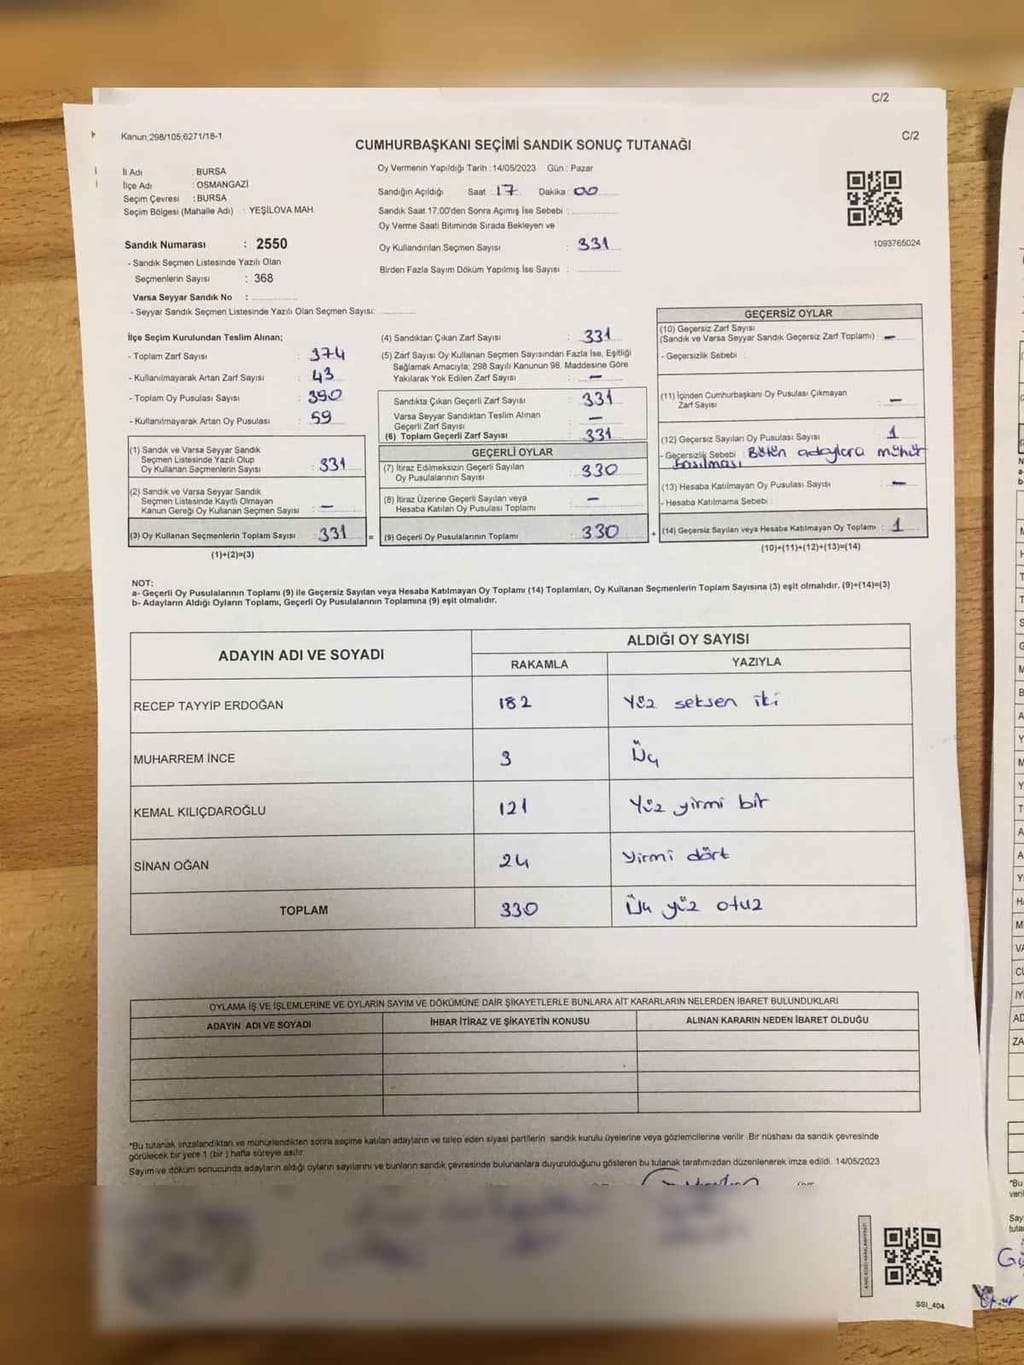 C/2
C/2
Kanun:298/105,6271/18-1
CUMHURBAŞKANI SEÇİMİ SANDIK SONUÇ TUTANAĞI
İl Adı : BURSA
İlçe Adı : OSMANGAZİ
Seçim Çevresi : BURSA
Seçim Bölgesi (Mahalle Adı) : YEŞİLOVA MAH.
Oy Vermenin Yapıldığı Tarih :14/05/2023 Gün : Pazar
Sandığın Açıldığı Saat : 17 Dakika : 00
Sandık Saat 17.00'den Sonra Açımış İse Sebebi :
Oy Verme Saati Bitiminde Sırada Bekleyen ve
Oy Kullandırılan Seçmen Sayısı : 331
Birden Fazla Sayım Döküm Yapılmış İse Sayısı :
1093765024
Sandık Numarası : 2550
- Sandık Seçmen Listesinde Yazılı Olan
Seçmenlerin Sayısı : 368
Varsa Seyyar Sandık No :
- Seyyar Sandık Seçmen Listesinde Yazılı Olan Seçmen Sayısı:
İlçe Seçim Kurulundan Teslim Alınan;
- Toplam Zarf Sayısı : 374
- Kullanılmayarak Artan Zarf Sayısı : 43
- Toplam Oy Pusulası Sayısı : 390
- Kullanılmayarak Artan Oy Pusulası : 59
(1) Sandık ve Varsa Seyyar Sandık
Seçmen Listesinde Yazılı Olup
Oy Kullanan Seçmenlerin Sayısı : 331
(2) Sandık ve Varsa Seyyar Sandık
Seçmen Listesinde Kayıtlı Olmayan
Kanun Gereği Oy Kullanan Seçmen Sayısı : —
(3) Oy Kullanan Seçmenlerin Toplam Sayısı : 331
(1)+(2)=(3)
(4) Sandıktan Çıkan Zarf Sayısı : 331
(5) Zarf Sayısı Oy Kullanan Seçmen Sayısından Fazla İse, Eşitliği
Sağlamak Amacıyla; 298 Sayılı Kanunun 98. Maddesine Göre
Yakılarak Yok Edilen Zarf Sayısı : —
Sandıkta Çıkan Geçerli Zarf Sayısı : 331
Varsa Seyyar Sandıktan Teslim Alınan
Geçerli Zarf Sayısı : —
(6) Toplam Geçerli Zarf Sayısı : 331
GEÇERLİ OYLAR
(7) İtiraz Edilmeksizin Geçerli Sayılan
Oy Pusulalarının Sayısı : 330
(8) İtiraz Üzerine Geçerli Sayılan veya
Hesaba Katılan Oy Pusulası Toplamı : —
= (9) Geçerli Oy Pusulalarının Toplamı : 330
GEÇERSİZ OYLAR
(10) Geçersiz Zarf Sayısı
(Sandık ve Varsa Seyyar Sandık Geçersiz Zarf Toplamı) : —
- Geçersizlik Sebebi :
(11) İçinden Cumhurbaşkanı Oy Pusulası Çıkmayan
Zarf Sayısı : —
(12) Geçersiz Sayılan Oy Pusulası Sayısı : 1
- Geçersizlik Sebebi : Bütün adaylara mühür
basılması
(13) Hesaba Katılmayan Oy Pusulası Sayısı : —
- Hesaba Katılmama Sebebi :
+ (14) Geçersiz Sayılan veya Hesaba Katılmayan Oy Toplamı : 1
(10)+(11)+(12)+(13)=(14)
NOT:
a- Geçerli Oy Pusulalarının Toplamı (9) ile Geçersiz Sayılan veya Hesaba Katılmayan Oy Toplamı (14) Toplamları, Oy Kullanan Seçmenlerin Toplam Sayısına (3) eşit olmalıdır. (9)+(14)=(3)
b- Adayların Aldığı Oyların Toplamı, Geçerli Oy Pusulalarının Toplamına (9) eşit olmalıdır.
ADAYIN ADI VE SOYADI ALDIĞI OY SAYISI
RAKAMLA YAZIYLA
RECEP TAYYİP ERDOĞAN 182 Yüz seksen iki
MUHARREM İNCE 3 Üç
KEMAL KILIÇDAROĞLU 121 Yüz yirmi bir
SİNAN OĞAN 24 Yirmi dört
TOPLAM 330 Üç yüz otuz
OYLAMA İŞ VE İŞLEMLERİNE VE OYLARIN SAYIM VE DÖKÜMÜNE DAİR ŞİKAYETLERLE BUNLARA AİT KARARLARIN NELERDEN İBARET BULUNDUKLARI
ADAYIN ADI VE SOYADI İHBAR İTİRAZ VE ŞİKAYETİN KONUSU ALINAN KARARIN NEDEN İBARET OLDUĞU
*Bu tutanak imzalandıktan ve mühürlendikten sonra seçime katılan adayların ve talep eden siyasi partilerin sandık kurulu üyelerine veya gözlemcilerine verilir. Bir nüshası da sandık çevresinde
görülecek bir yere 1 (bir) hafta süreyle asılır.
Sayım ve döküm sonucunda adayların aldığı oyların sayılarını ve bunların sandık çevresinde bulunanlara duyurulduğunu gösteren bu tutanak tarafımızdan düzenlenerek imza edildi. 14/05/2023
SSI_404